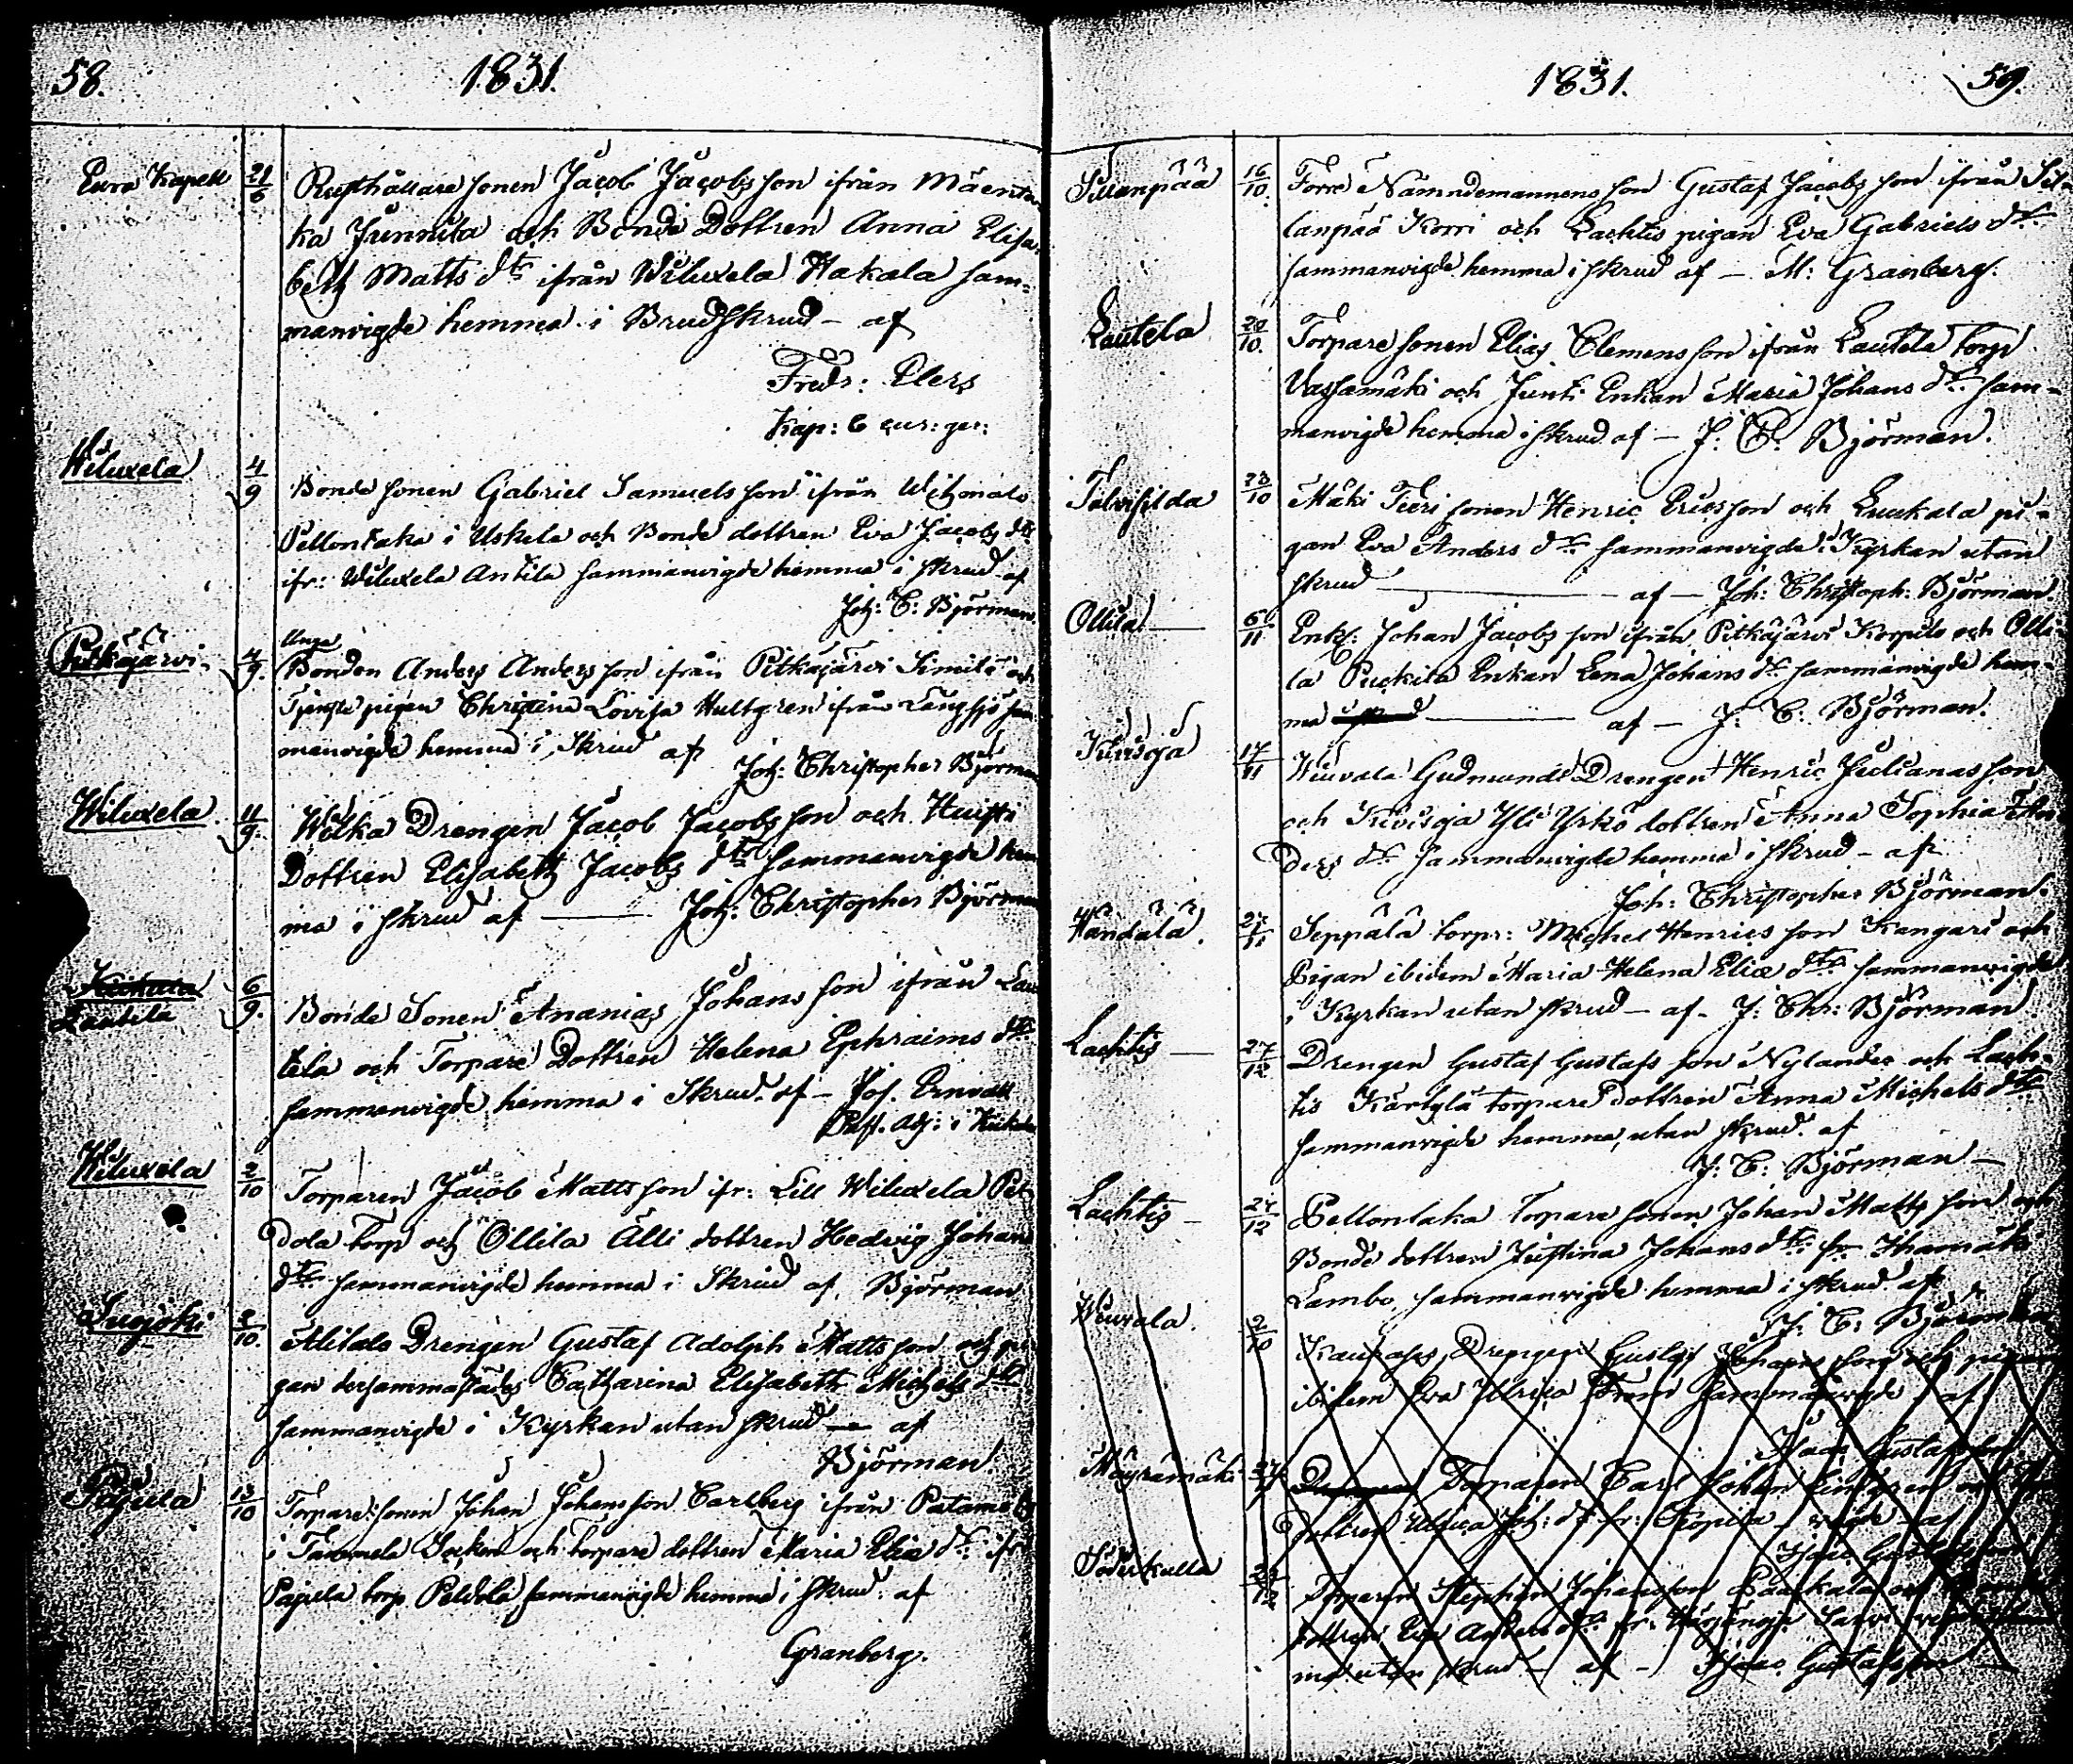 58.
1831.
Eura Kapell 21/6 Rusthållare sonen Jacob Jacobs son ifrån Mäenta
ka Junnila och Bonde Dottren Anna Elisa
beth Matts dtr ifrån Wiluxela Hakala sam=
manvigde hemma i Brudskrud – af
Fredr: Elers
Kap:
Wiluxela 4/9 Bonde sonen Gabriel Samuels son ifrån
Pellonlaka i Uskela och Bonde dottren Eva Jacobs dtr
ifr: Wiluxela Antila sammanvigde hemma i skrud af
Joh: C: Björman
Unga
Pitkäjärvi 4/9. Bonden Anders Anders son ifrån Pitkäjärvi Simila och
Tjenste pigan Christina Lovisa Hultgren ifrån Långsjö sam
manvigde hemma i Skrud af
Joh: Christopher Björman
Wiluxela 11/9. Drengen Jacob Jacobs son och
Dottren Elisabeth Jacobs dtr sammanvigde hem
ma i skrud af — Joh: Christopher Björman
Lautela 6/9. Bonde Sonen Ananias Johans son ifrån Lau
tela och Torpare Dottren Helena Ephraims dtr
sammanvigde hemma i Skrud. af –
Past. Adj: i
Wiluxela 2/10 Torparen Jacob Matts son ifr: Lill Wiluxela Pel
dola torp och Ollila Alli dottren Hedvig Johans
dtr sammanvigde hemma i Skrud af, Björman
Suojoki 2/10. Alitalo Drengen Gustaf Adolph Matts son och pi
gan dersammastädes Catharina Elisabeth Michels dtr
sammanvigde i Kyrkan utan skrud — af
Björman.
Pajula 13/10 Torpare sonen Johan Johans son Carlberg ifrån
i Tammela Socken och torpare dottren Maria Eliæ dtr ifr
Pajula torp Peldola sammanvigde hemma i skrud. af
Granberg.
1831.
59.
Sillanpää 16/10. Förre Nämndemannens son Gustaf Jacobs son ifrån Sil=
lanpää Korri och Lachtis pigan Eva Gabriels dtr
sammanvigde hemma i skrud af – M: Granberg.
Lautela 20/10. Torpare sonen Elias Clemens son ifrån Lautela torp
Vassamäki och Junti Enkan Maria Johans dtr sam=
manvigde hemma i skrud af – J: C: Björman.
Talvisilda 23/10 Mäki sonen Henric Ericsson och pi=
gan Eva Anders dtr sammanvigde i Kyrkan utan
skrud — af — Joh: Christoph: Björman.
Ollila — 6/11 Enkl: Johan Jacobs son ifrån Pitkäjärvi Korpilo och Olli=
la Enkan Lena Johans dtr sammanvigde hem=
ma — af — J: C: Björman.
Kivisoja 17/11 Gudmunds Drengen Henric Julianas son
och Kivisoja Yli Yrkö dottren Anna Sophia An
ders dtr sammanvigde hemma i skrud – af
Joh: Christopher Björman.
27/11 Seppälä torpr: Michel Henrics son Kangari och
Pigan ibidem Maria Helena Eliæ dtr sammanvigde
i Kyrkan utan skrud – af – J: Chr: Björman
Lachtis — 27/12 Drengen Gustaf Gustafs son Nylander och Lach=
tis torpare dottren Anna Michels dtr
sammanvigde hemma, utan skrud. af
J: C: Björman —
Lachtis — 27/12 Pellonlaka torpare sonen Johan Matts son och
Bonde dottren Justina Johans dtr fr
Lambo, sammanvigde hemma i skrud. af
J: C: Björman
2/10 Drengen Gustaf Johans son och pigan
ibidem Eva Ulrica sammanvigde af
Isaac Gustafsson
Mäyrämäki Torparen Carl Johan Lindgren
dottren Ulrica Joh: dtr fr: vigde – af
Isaac
Söderkulla Torparen Stephan Johansson
dottren Eva Anders dtr fr:
ma utan skrud – af – Isaac Gustafsson